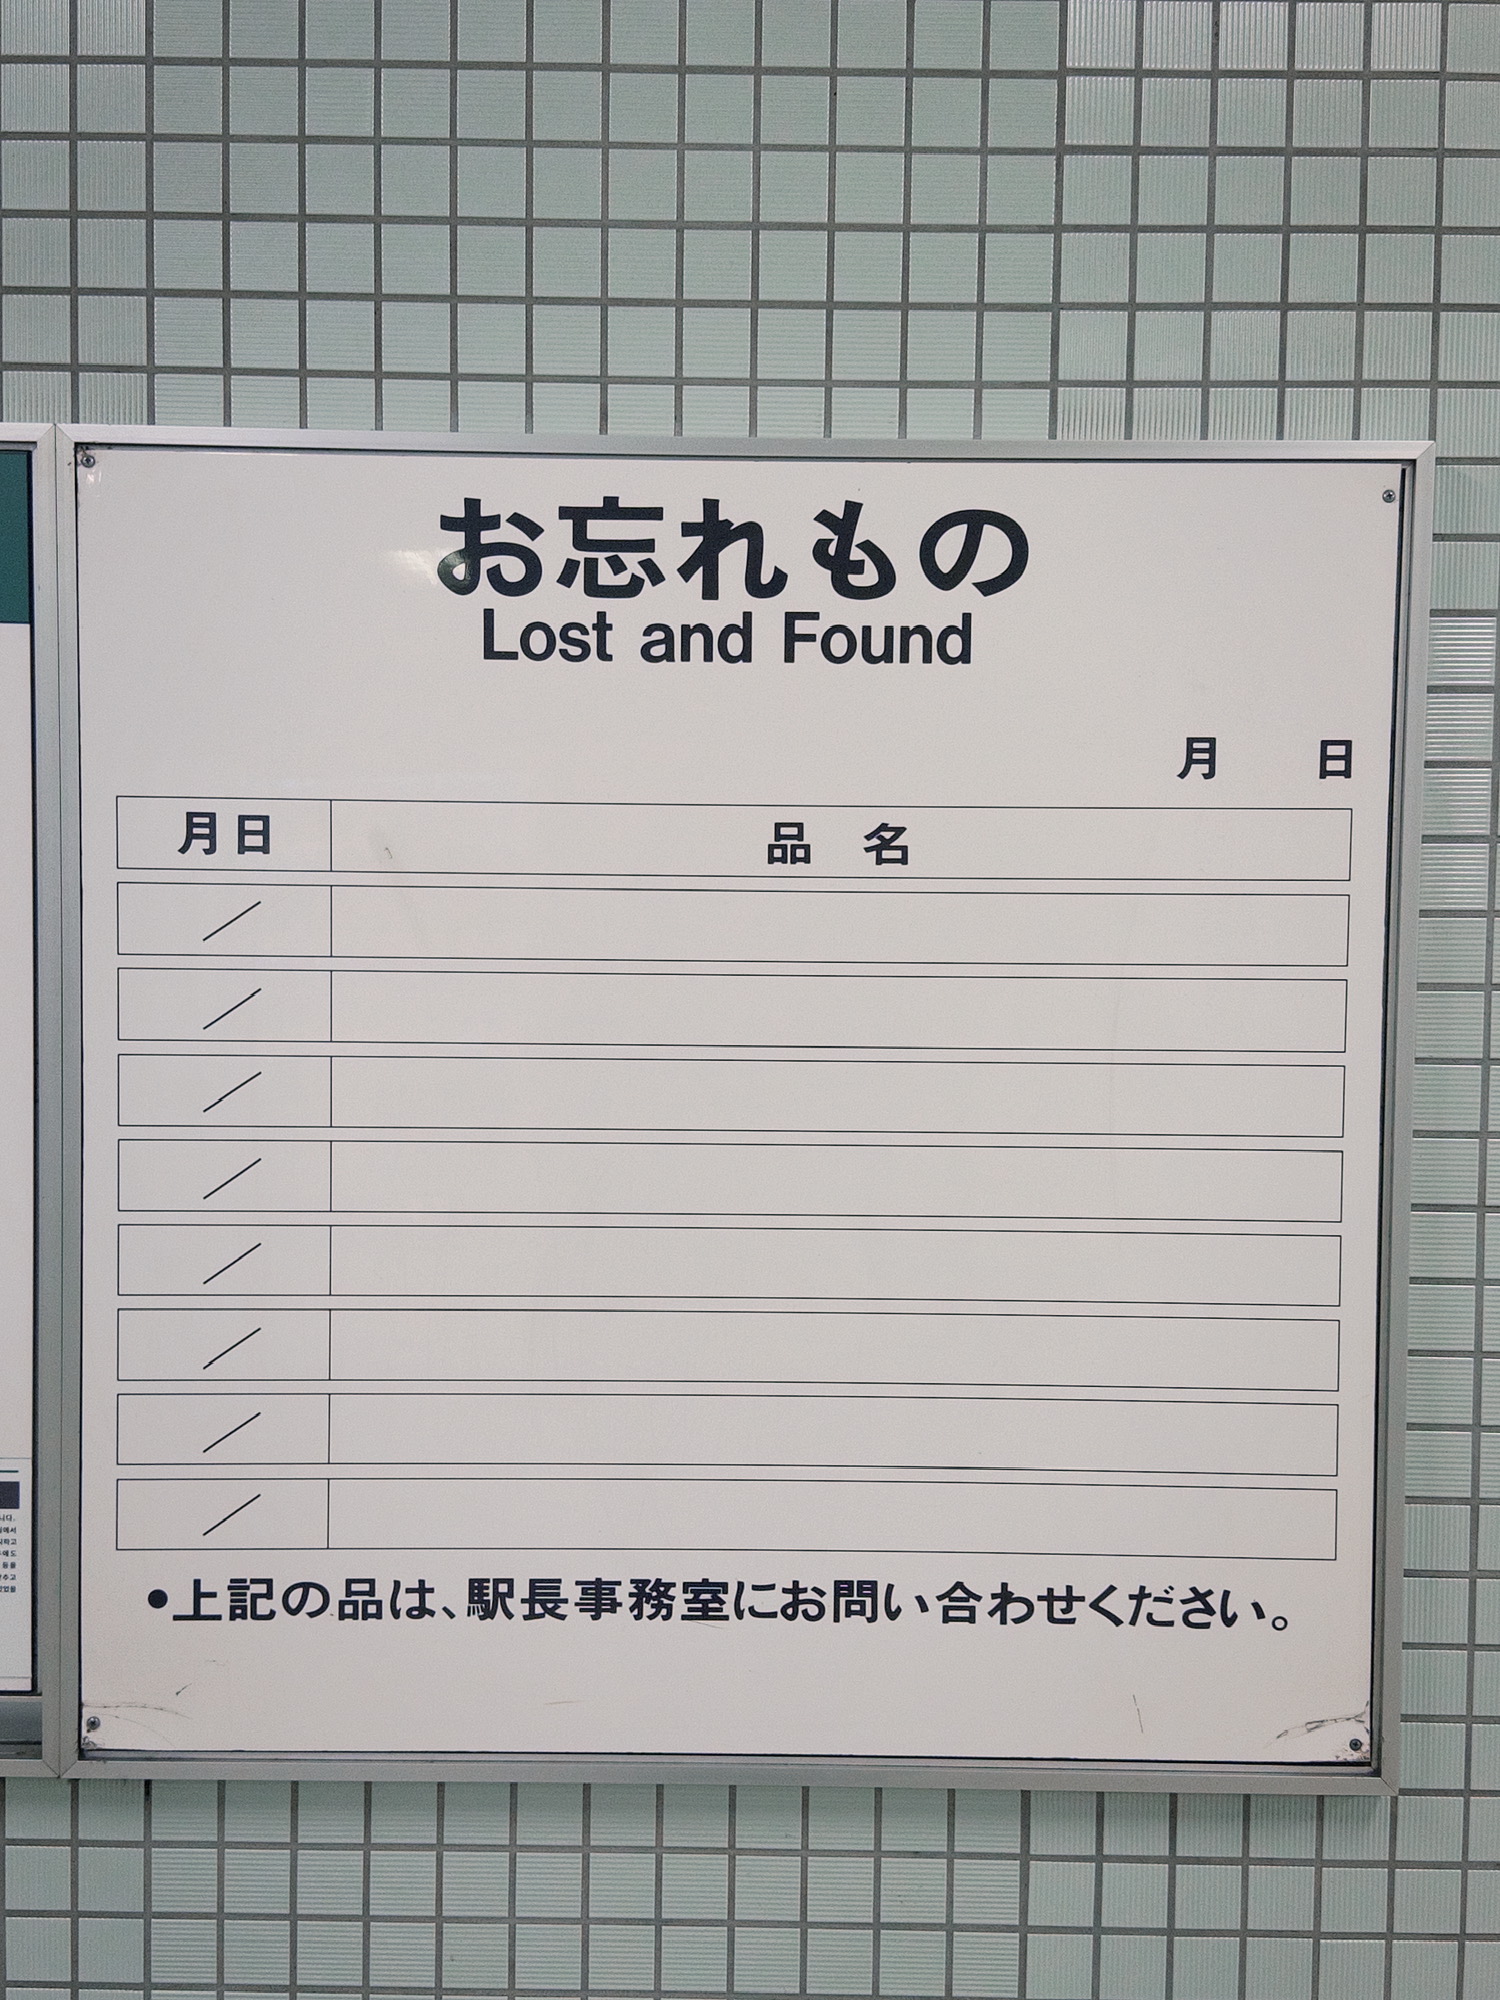 お忘れもの
Lost and Found
月 日
月日 品 名
／
／
／
／
／
／
／
／
●上記の品は、駅長事務室にお問い合わせください。
니다.